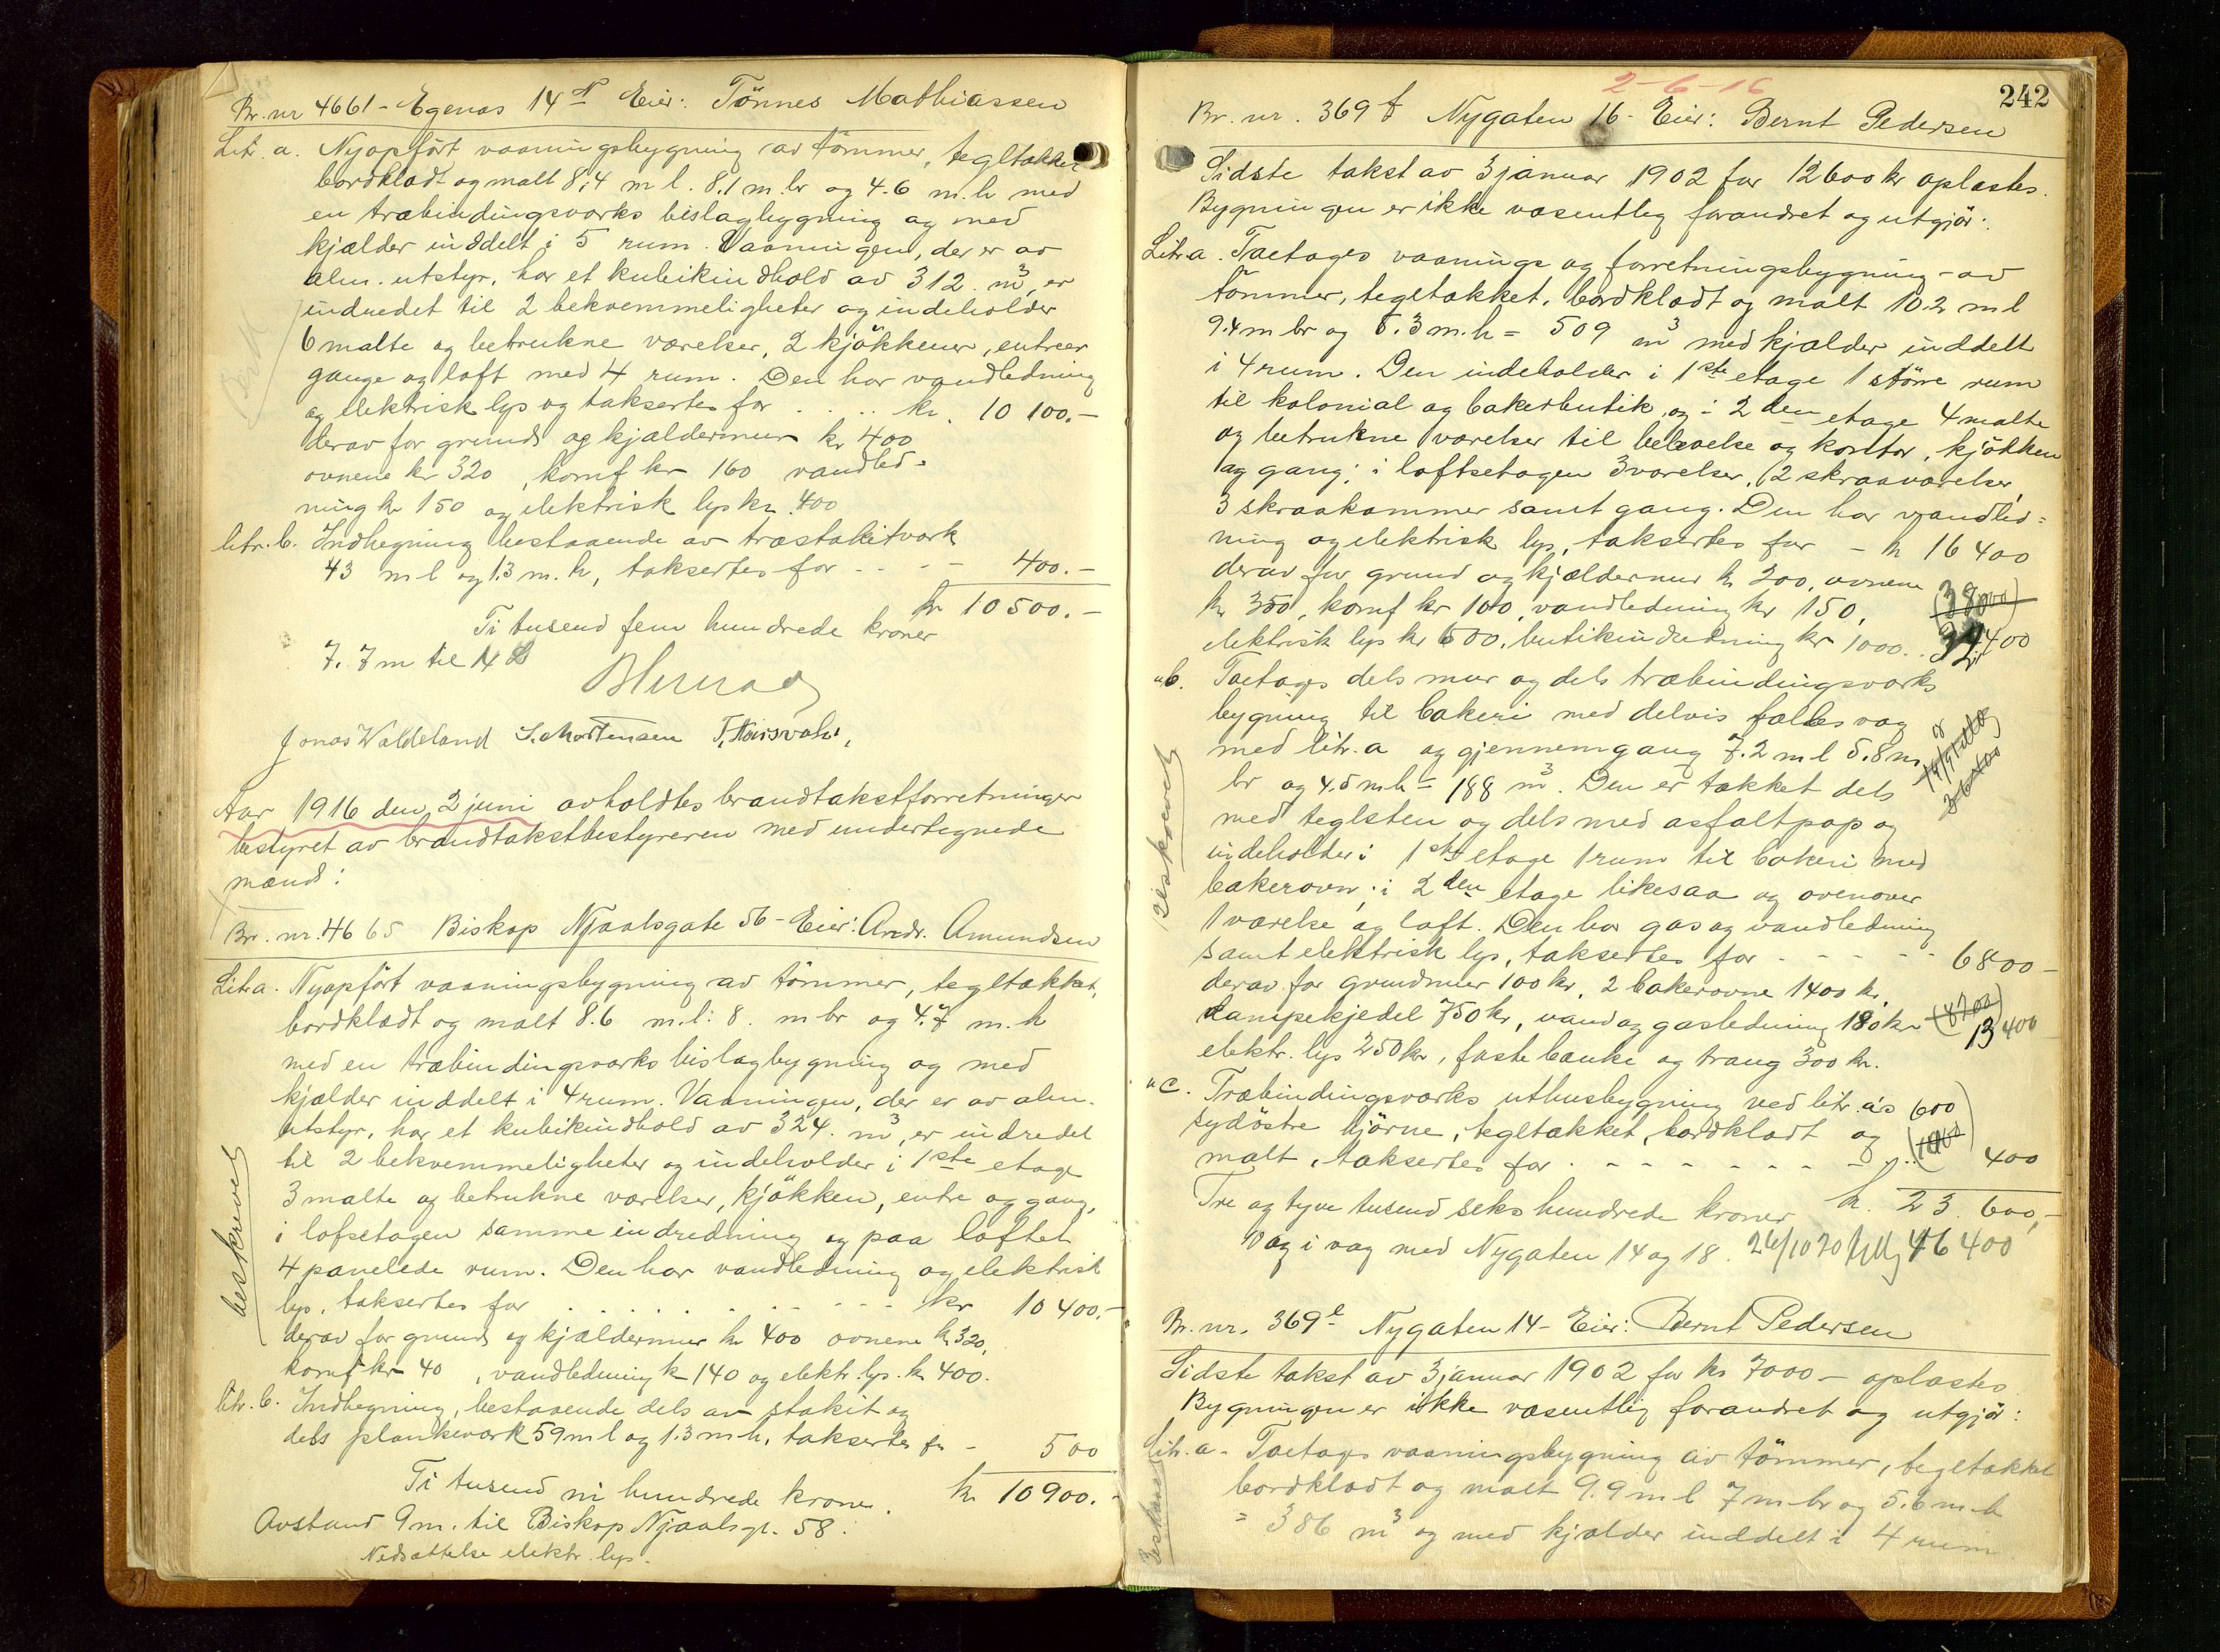 Br. nr 4661 - Egenæs 14 d Eier: Tönnes Mathiassen
Litr. a. Nyopfört vaaningsbygning av tömmer, tegltækket
bordklædt og malt 8,4 m l. 8.1 m. br og 4.6 m. h med
en træbindingsværks bislagbygning og med
kjælder inddelt i 5 rum. Vaaningen, der er av
alm. utstyr, har et kubikindhold av 312 m³, er
indredet til 2 bekvemmeligheter og indeholder
6 malte og betrukne værelser, 2 kjökkener, entreer
gange og loft med 4 rum. Den har vandledning
og elektrisk lys og taksertes for . . . . kr. 10 100.-
derav for grund og kjældermur kr 400
ovnene kr 320, komf kr 160 vandled=
ning kr 150 og elektrisk lys kr. 400
litr. b. Indhegning bestaaende av træstakitværk
43 m l og 1.3 m. h, taksertes for - - - - 400.-
kr 10500.-
Ti tusend fem hundrede kroner
7. 7 m til 14
Jonas Waldeland S. Mortensen
Aar 1916 den 2 juni avholdtes brandtakstforretninger
bestyret av brandtakstbestyreren med undertegnede
mænd:
Br. nr. 4665 Biskop Njaalsgate 56 - Eier: Andr. Amundsen
Litr a. Nyopfört vaaningsbygning av tömmer, tegltækket,
bordklædt og malt 8.6 m.l. 8. m br og 4.7 m. h
med en træbindingsværks bislagbygning og med
kjælder inddelt i 4 rum. Vaaningen, der er av alm.
utstyr, har et kubikindhold av 324. m³, er indredet
til 2 bekvemmeligheter og indeholder i 1ste etage
3 malte og betrukne værelser, kjökken, entre og gang,
i lofsetagen samme indredning og paa loftet
4 panelede rum. Den har vandledning og elektrisk
lys, taksertes for . . . . . . - - - - kr 10400.-
derav for grund og kjældermur kr 400 ovnene kr 320,
komf kr 40, vandledning kr 140 og elektr. lys. kr 400.
beskrevet
litr. b. Indhegning, bestaaende dels av stakit og
dels plankeværk 59 m l og 1.3 m h, taksertes for - 500
Ti tusend ni hundrede kroner. kr 10900.-
Avstand 9 m. til Biskop Njaalsgt. 58.
Nedsættelse elektr. lys.
2-6-16
242
Br. nr. 369 f Nygaten 16 - Eier: Bernt Pedersen
Sidste takst av 3 januar 1902 for 12600 kr oplæstes.
Bygningen er ikke væsentlig forandret og utgjör:
Litr a. Toetages vaanings og forretningsbygning - av
tömmer, tegltækket, bordklædt og malt 10.2 m l
9.4 m br og 5.3 m. h = 509 m³ med kjælder inddelt
i 4 rum. Den indeholder i 1ste etage 1 större rum
til kolonial og bakerbutik, og i 2den etage 4 malte
og betrukne værelser til beboelse og kontor, kjökken
og gang; i loftsetagen 3 værelser, (2 skraaværelser,
3 skraakammer samt gang. Den har vandled=
ning og elektrisk lys, taksertes for - kr 16400
derav for grund og kjældermur kr 200, ovnene
kr 350, komf kr 100, vandledning kr 150, (38000)
elektrisk lys kr 600, butikindredning kr 1000. 400
"b. Toetages dels mur og dels træbindingsværks
bygning til bakeri med delvis fælles væg
med litr. a og gjennemgang 7.2 m l 5.8 m
br og 4.5 m h = 188 m³. Den er tækket dels
36400
med teglsten og dels med asfaltpap og
indeholder i 1ste etage 1 rum til bakeri med
bakerovn; i 2den etage likesaa og ovenover
1 værelse og loft. Den har gas og vandledning
samt elektrisk lys, taksertes for - - - - - 6800 -
derav for grundmur 100 kr, 2 bakerovne 1400 kr,
dampekjedel 750 kr, vand og gasledning 180 kr (8200) 13400
elektr. lys 250 kr, faste bænke og traug 300 kr.
beskrevet
"c. Træbindingsværks uthusbygning ved litr. a's 600
sydöstre hjörne, tegltækket, bordklædt og
malt, taksertes for . - - - - - - - 400
Tre og tyve tusend seks hundrede kroner kr. 23 600,-
Væg i væg med Nygaten 14 og 18. 26/10 20 46400
Br. nr. 369 e Nygaten 14 - Eier: Bernt Pedersen
Sidste takst av 3 januar 1902 for kr 7000 - oplæstes.
Bygningen er ikke væsentlig forandret og utgjör:
Litr. a. Toetages vaaningsbygning av tömmer, tegltækket
bordklædt og malt 9.9 m l 7 m br og 5.6 m h
= 386 m³ og med kjælder inddelt i 4 rum
Beskrevet